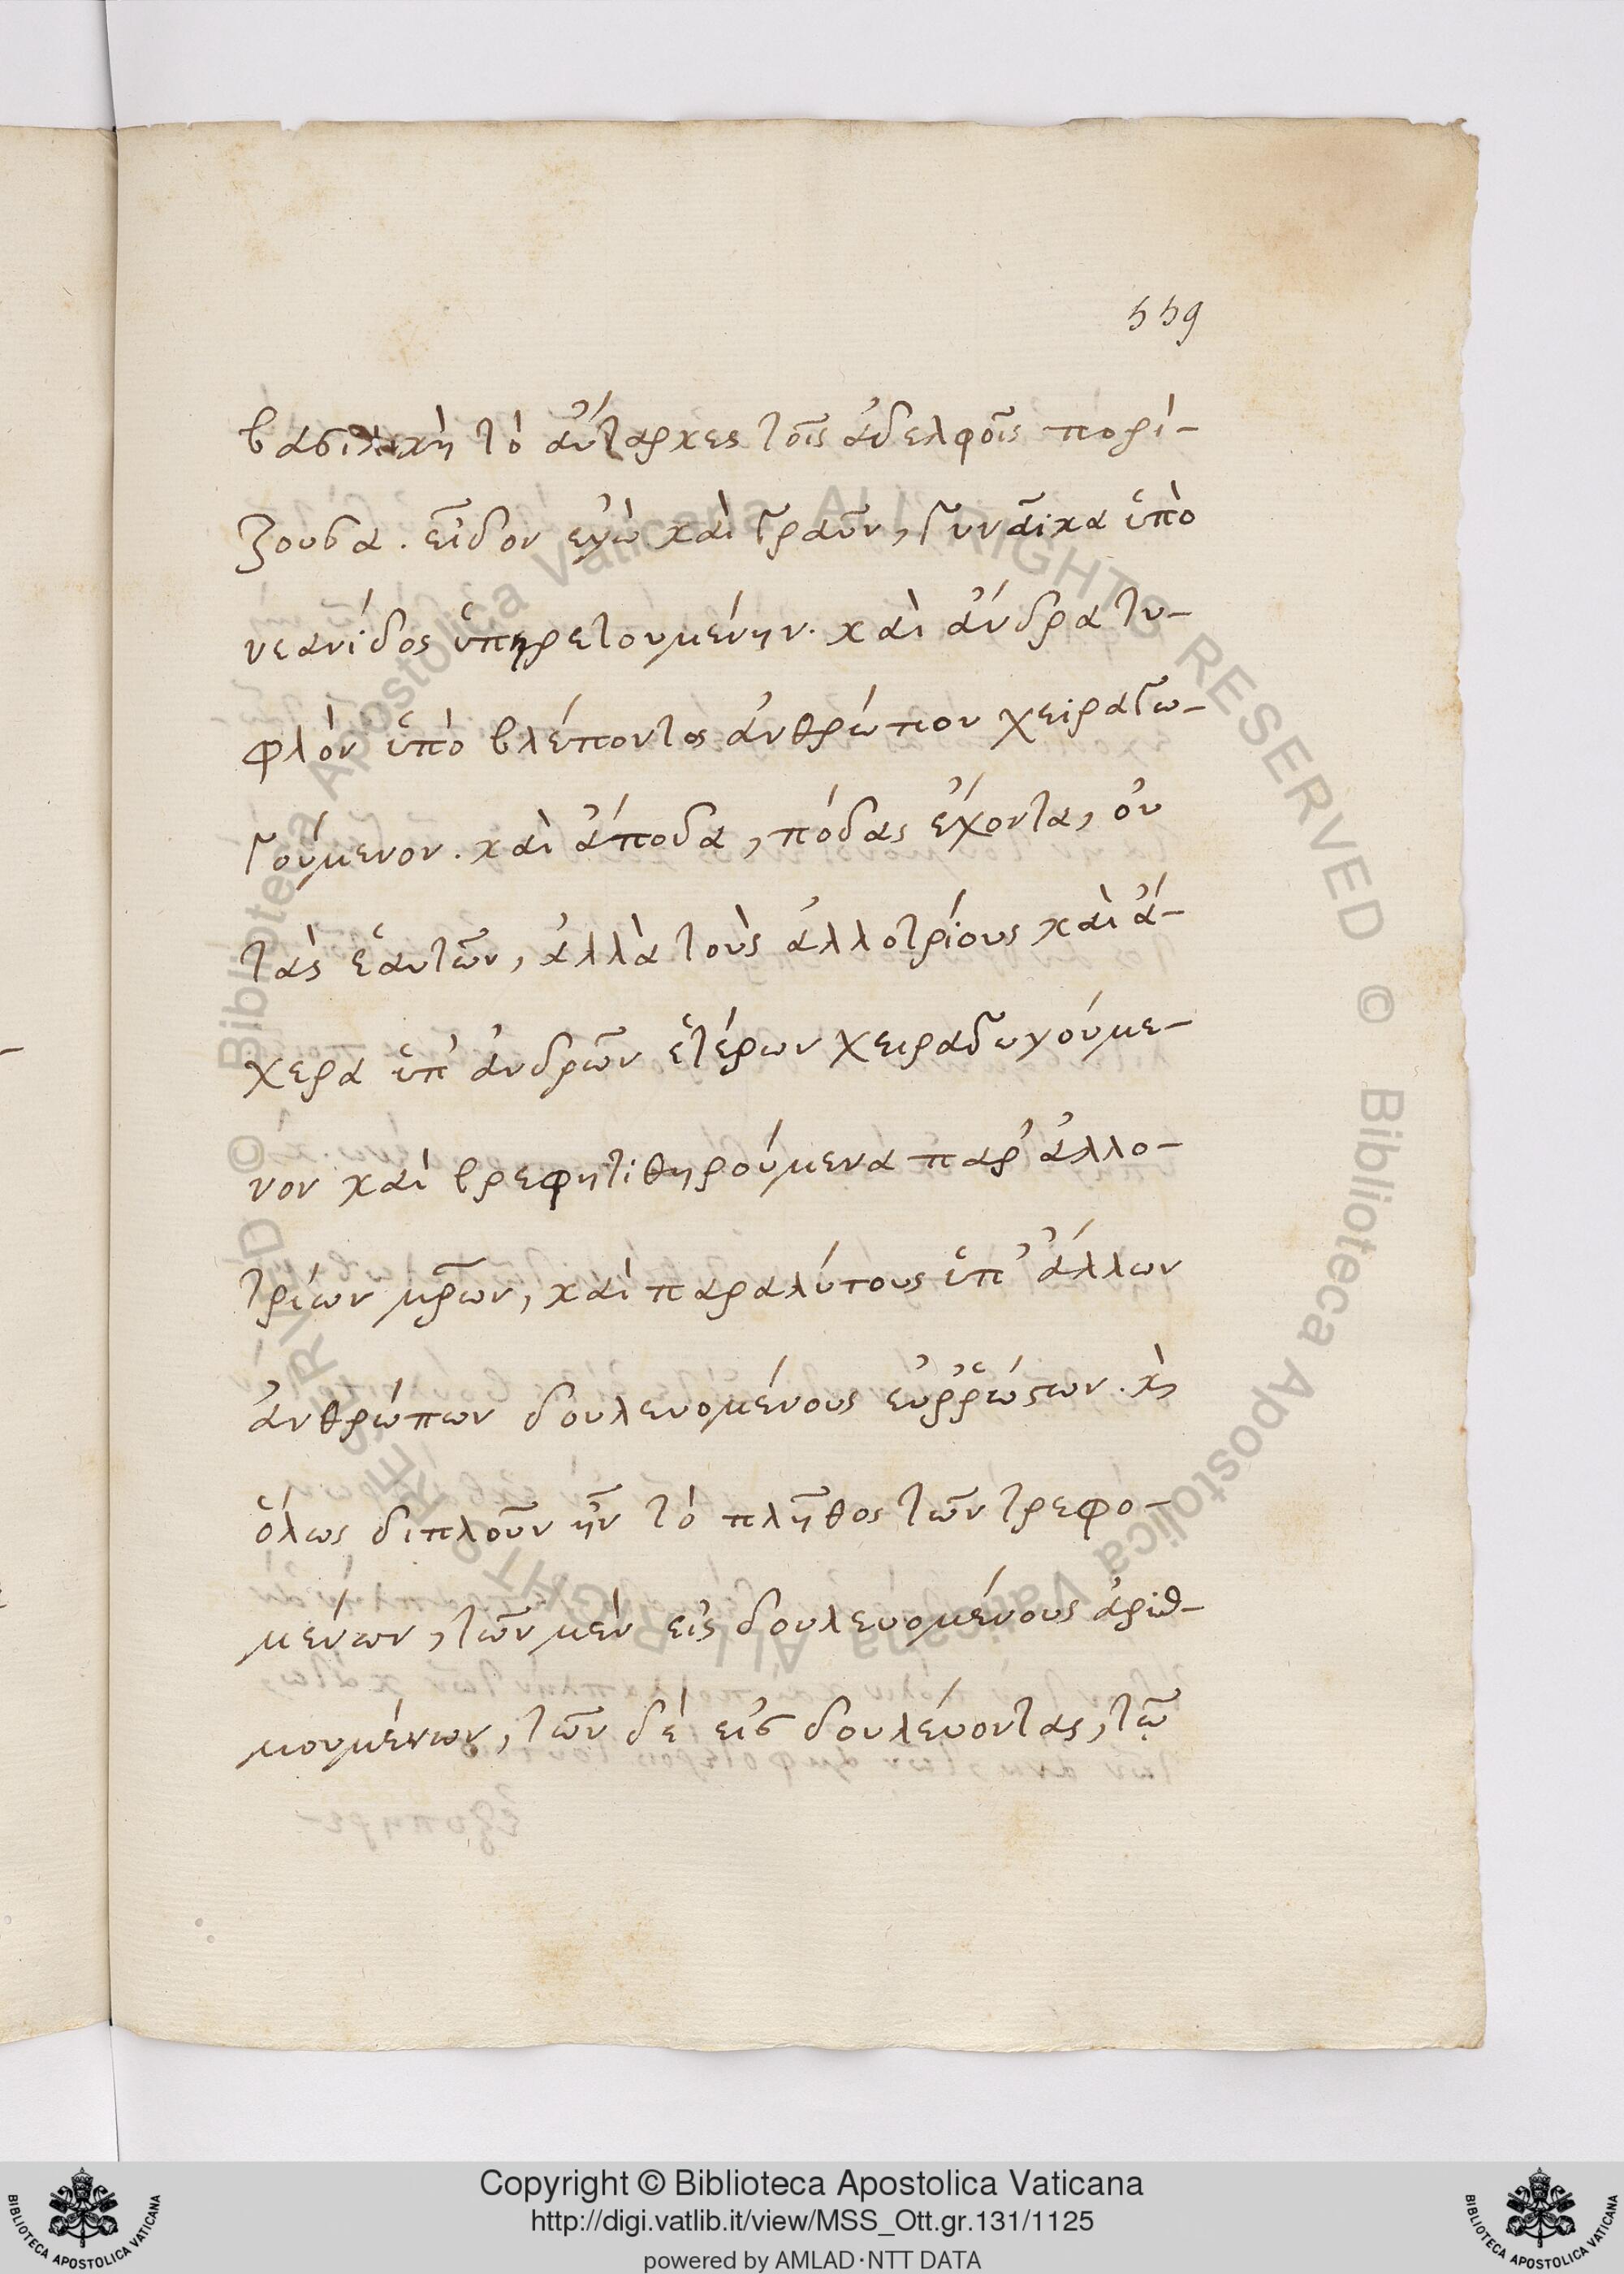 559
βασιλικὴ τὸ αὔταρκες τοῖς ἀδελφοῖς πορί-
ζουσα. εἶδον ἐγὼ καὶ γραῦν, γυναῖκα ὑπὸ
νεανίδος ὑπηρετουμένην. καὶ ἄνδρα τυ-
φλὸν ὑπὸ βλέποντος ἀνθρώπου χειραγω-
γούμενον. καὶ ἄποδα, πόδας ἔχοντα, οὐ
τὰς ἑαυτῶν, ἀλλὰ τοὺς ἀλλοτρίους καὶ ἄ-
χερα ὑπ' ἀνδρῶν ἑτέρων χειραγωγούμε-
νον καὶ βρεφητιθηρούμενα παρ' ἀλλο-
τρίων μρ̅ων, καὶ παραλύτους ὑπ' ἄλλων
ἀνθρώπων δουλευομένους εὐῤῥώστων. κὶ
ὅλως διπλοῦν ἦν τὸ πλῆθος τῶν τρεφο-
μένων, τῶν μὲν εἰς δουλευομένους ἀριθ-
μουμένων, τῶν δὲ εἰς δουλεύοντας, τῷ
Copyright © Biblioteca Apostolica Vaticana
http://digi.vatlib.it/view/MSS_Ott.gr.131/1125
powered by AMLAD·NTT DATA
BIBLIOTECA APOSTOLICA VATICANA
BIBLIOTECA APOSTOLICA VATICANA